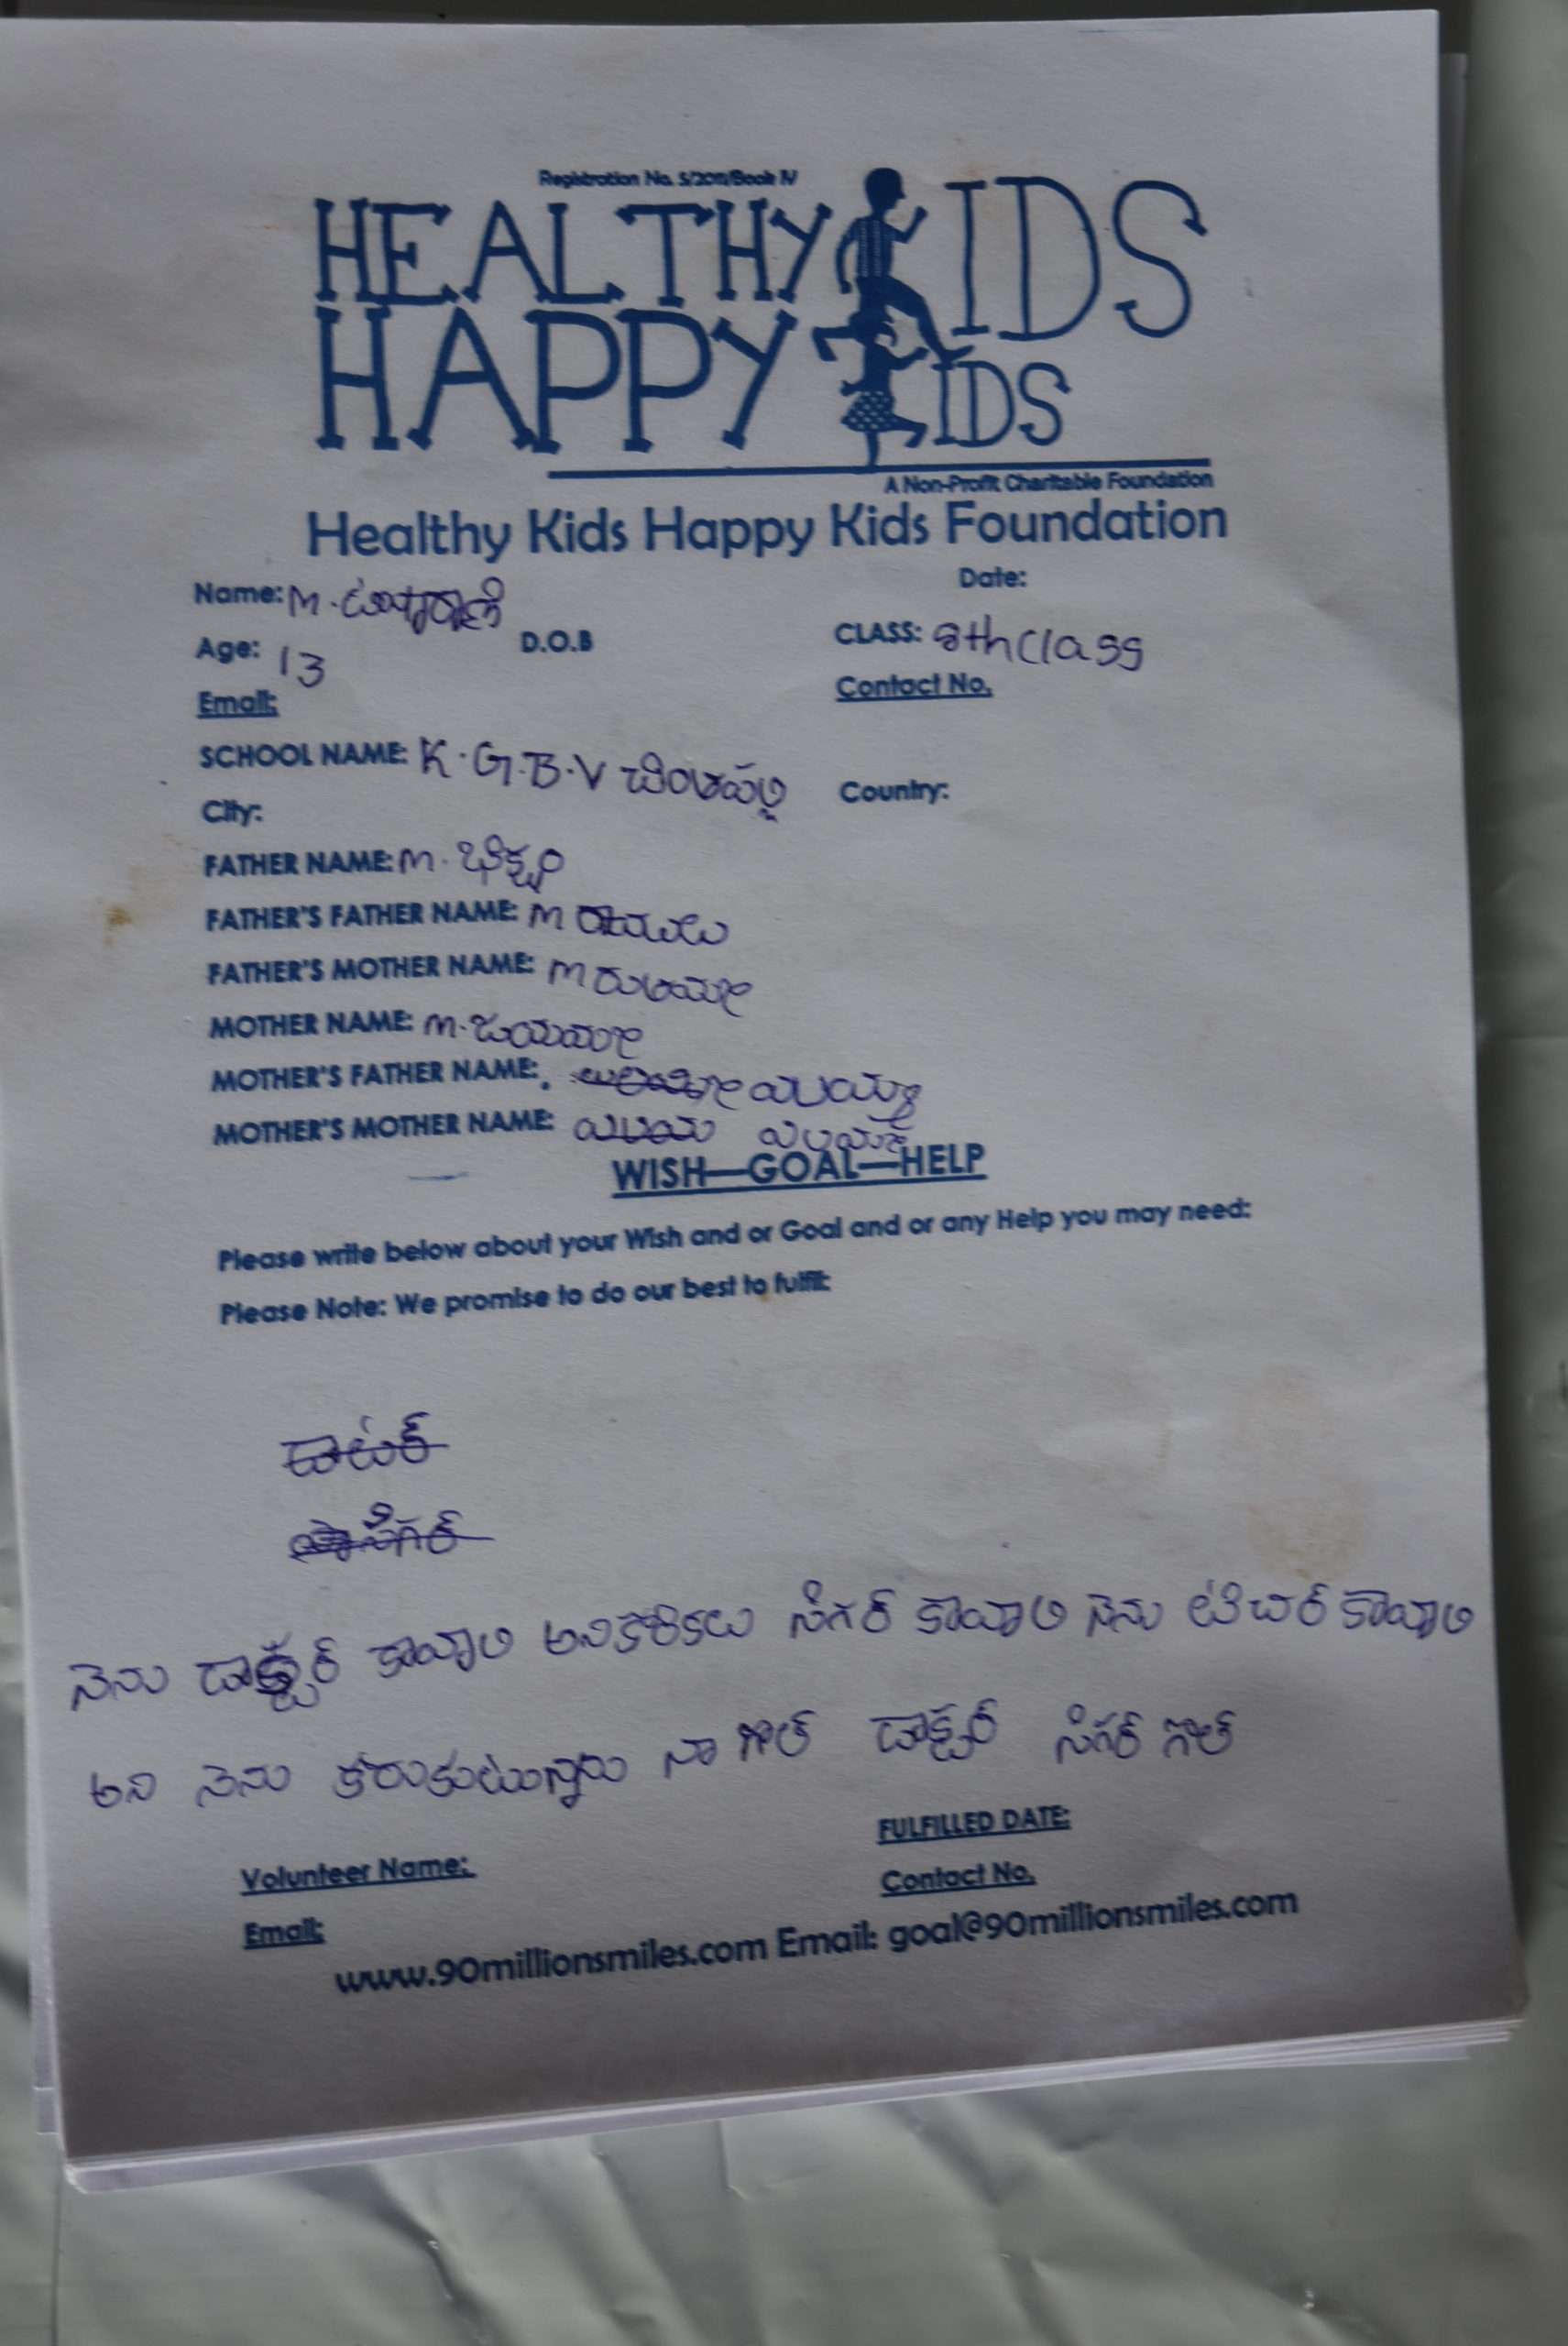 Registration No. 5/2011/Book IV
HEALTHY KIDS
HAPPY KIDS
A Non-Profit Charitable Foundation
Healthy Kids Happy Kids Foundation
Name: M.
Date:
Age: 13 D.O.B
CLASS: 8th class
Email:
Contact No.
SCHOOL NAME: K.G.B.V చింతపల్లి
City:
Country:
FATHER NAME: M. భిక్షం
FATHER'S FATHER NAME: M రాములు
FATHER'S MOTHER NAME: M
MOTHER NAME: M. జయమ్మ
MOTHER'S FATHER NAME:
MOTHER'S MOTHER NAME:
WISH—GOAL—HELP
Please write below about your Wish and or Goal and or any Help you may need:
Please Note: We promise to do our best to fulfil:
నెను డాక్టర్ కావాలి అని కొరికలు సిగర్ కావాలి నెను టిచర్ కావాలి
అని నెను కొరుకుటున్నాను నా గొల్ డాక్టర్ సిగర్ గొల్
FULFILLED DATE:
Volunteer Name:
Contact No.
Email:
www.90millionsmiles.com Email: goal@90millionsmiles.com